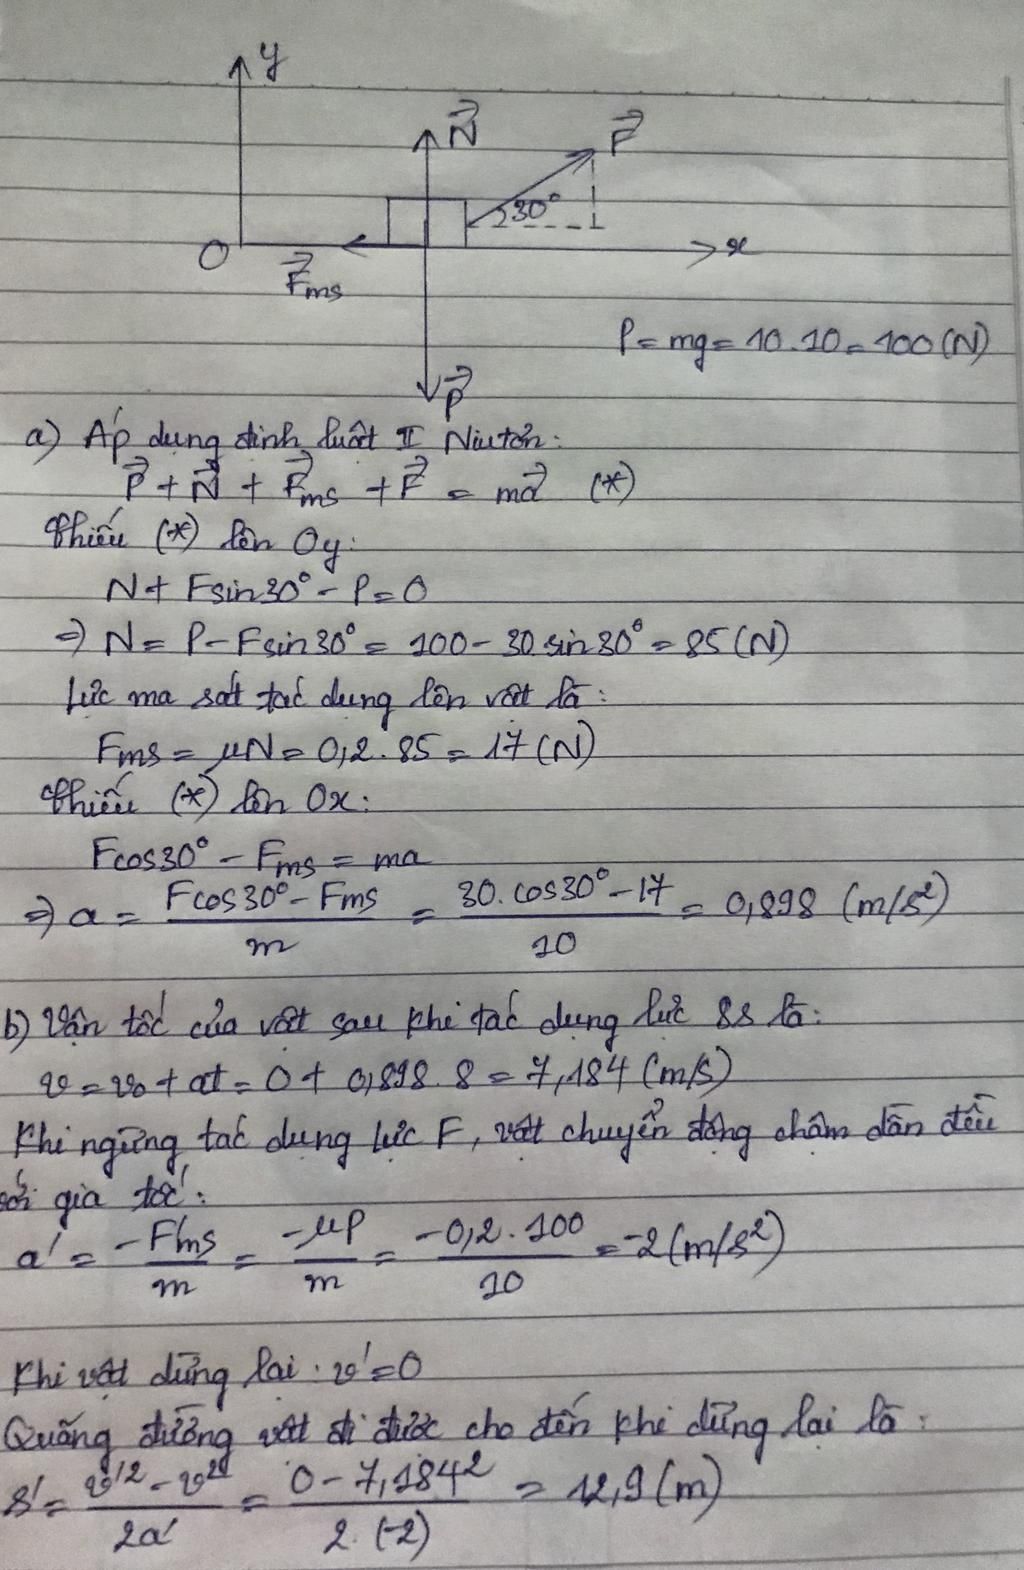 y
N⃗
F⃗
30°
O
x
F⃗ms
P = mg = 10.10 = 100 (N)
P⃗
a) Áp dụng định luật II Niutơn:
P⃗ + N⃗ + F⃗ms + F⃗ = ma⃗ (*)
Chiếu (*) lên Oy:
N + Fsin30° - P = 0
⇒ N = P - Fsin30° = 100 - 30.sin30° = 85 (N)
Lực ma sát tác dụng lên vật là:
Fms = μN = 0,2.85 = 17 (N)
Chiếu (*) lên Ox:
Fcos30° - Fms = ma
⇒ a = (Fcos30° - Fms)/m = (30.cos30° - 17)/10 = 0,898 (m/s²)
b) Vận tốc của vật sau khi tác dụng lực 8s là:
v = v₀ + at = 0 + 0,898.8 = 7,184 (m/s)
Khi ngừng tác dụng lực F, vật chuyển động chậm dần đều
với gia tốc:
a' = -F'ms/m = -μP/m = -0,2.100/10 = -2 (m/s²)
Khi vật dừng lại: v' = 0
Quãng đường vật đi được cho đến khi dừng lại là:
s' = (v'² - v²)/2a' = (0 - 7,184²)/2.(-2) = 12,9 (m)